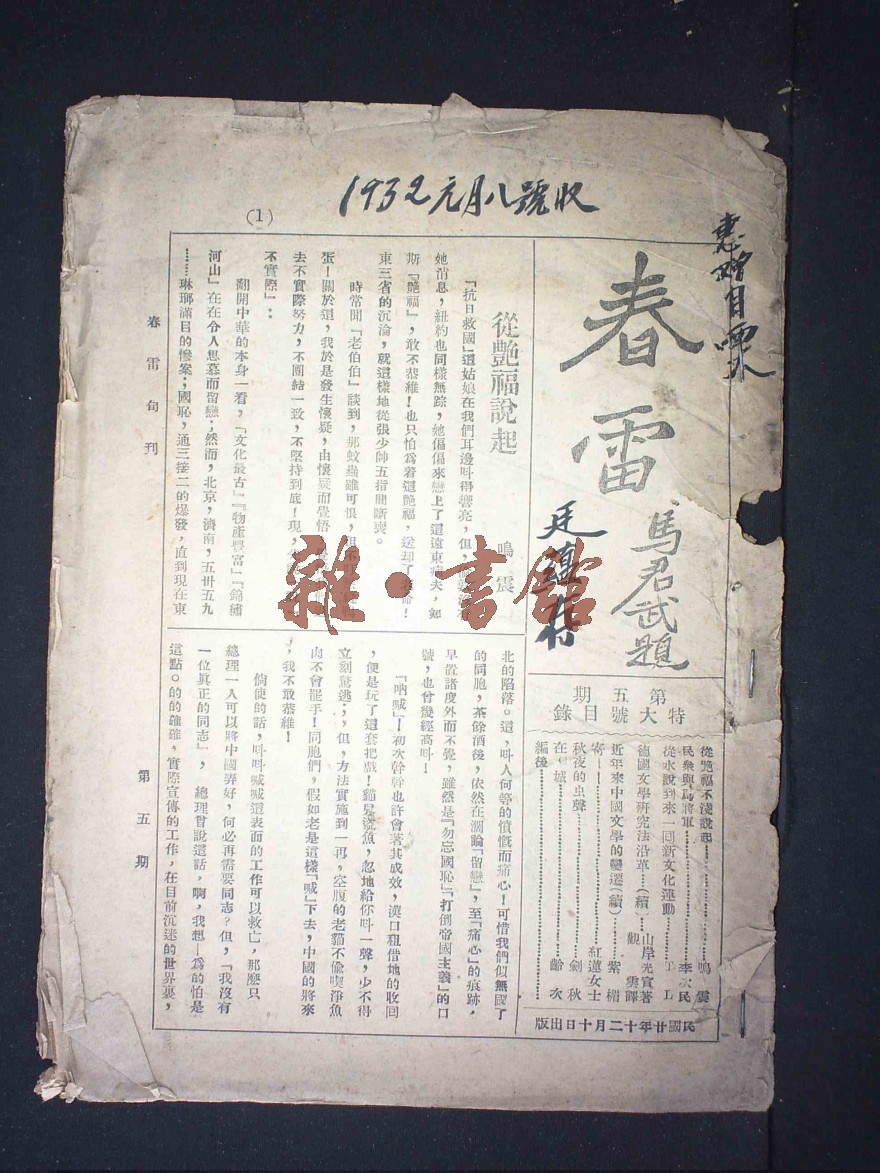 1932元月八號收
(1)
惠贈
春雷
馬君武題
特大號
第五期目錄
從艷福不淺說起………鳴震
民衆與馬將軍………李次民
從水說到來一囘新文化運動………丁L
德國文學硏究法沿革…(續) 山岸光宣著 觀雲譯
近年來中國文學的變遷(續)………紫楣
寄——………紅蓮女士
秋夜的虫聲………劍秋
在 城………齡次
編後
民國廿年十二月十日出版
從艷福說起
鳴震
「抗日救國」這姑娘在我們耳邊呌得響亮,但,
她消息,紐約也同樣無踪,她偏偏來戀上了這遠東病夫,如
斯「艷福」,敢不恭維!也只怕爲着這艷福,送却了 命!
東三省的沉淪,就這樣地從張少帥五指間斷喪。
時常聞「老伯伯」談到,那蚊蟲雖可恨,
蛋!關於這,我於是發生懷疑,由懷疑而覺悟,
去不實際努力,不團結一致,不堅持到底!現,
不實際」:
翻開中華的本身一看,「文化最古」「物產豐富」「錦繡
河山」在在令人思慕而留戀;然而,北京,濟南,五卅五九
………琳瑯滿目的慘案;國恥,通三接二的爆發,直到現在東
北的陷落。這,呌人何等的憤慨而痛心!可惜我們似無國了
的同胞,茶餘酒後,依然在瀾論「留戀」,至「痛心」的痕跡,
早置諸度外而不覺,雖然是「勿忘國恥」「打倒帝國主義」的口
號,也曾幾經高呌!
「吶喊」—初次幹幹也許會著其成效,漢口租借地的收回
,便是玩了這套把戲!貓兒盜魚,忽地給你呌一聲,少不得
立刻驚逃;,但,方法實施到一再,空腹的老貓不偷喫淨魚
肉不會罷手!同胞們,假如老是這樣「喊」下去,中國的將來
,我不敢恭維!
倘使的話,呌呌喊喊這表面的工作可以救亡,那麽只
總理一人可以將中國弄好,何必再需要同志?但,「我沒有
一位眞正的同志」, 總理曾說這話,啊,我想—爲的怕是
這點。的的確確,實際宣傳的工作,在目前沉迷的世界裏,
春雷旬刊
第五期
雜·書館